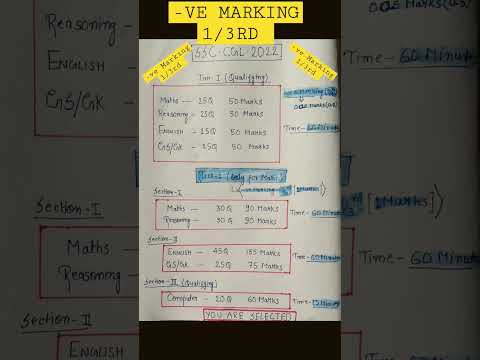 -VE MARKING
1/3RD
-ve Marking
1/3rd
-ve Marking
1/3rd
SSC-CGL-2022
Tier-I (Qualifying)
Maths — 25Q 50 Marks
Reasoning — 25Q 50 Marks
English — 25Q 50 Marks
GS/GK — 25Q 50 Marks
Time - 60 Minute
(Only for Main)
Section-I
Maths — 30Q 90 Marks
Reasoning — 30Q 90 Marks
Time - 60 Minute
Section-II
English — 45Q 135 Marks
GS/GK — 25Q 75 Marks
Time - 60 Minute
Section-III (Qualifying)
Computer — 20Q 60 Marks
Time - 15 Minute
YOU ARE SELECTED
Reasoning -
English -
GS/GK -
Section-I
Maths -
Reasoning -
Section-II
English
Marks
Time - 60 Minute
Time - 60 Minute